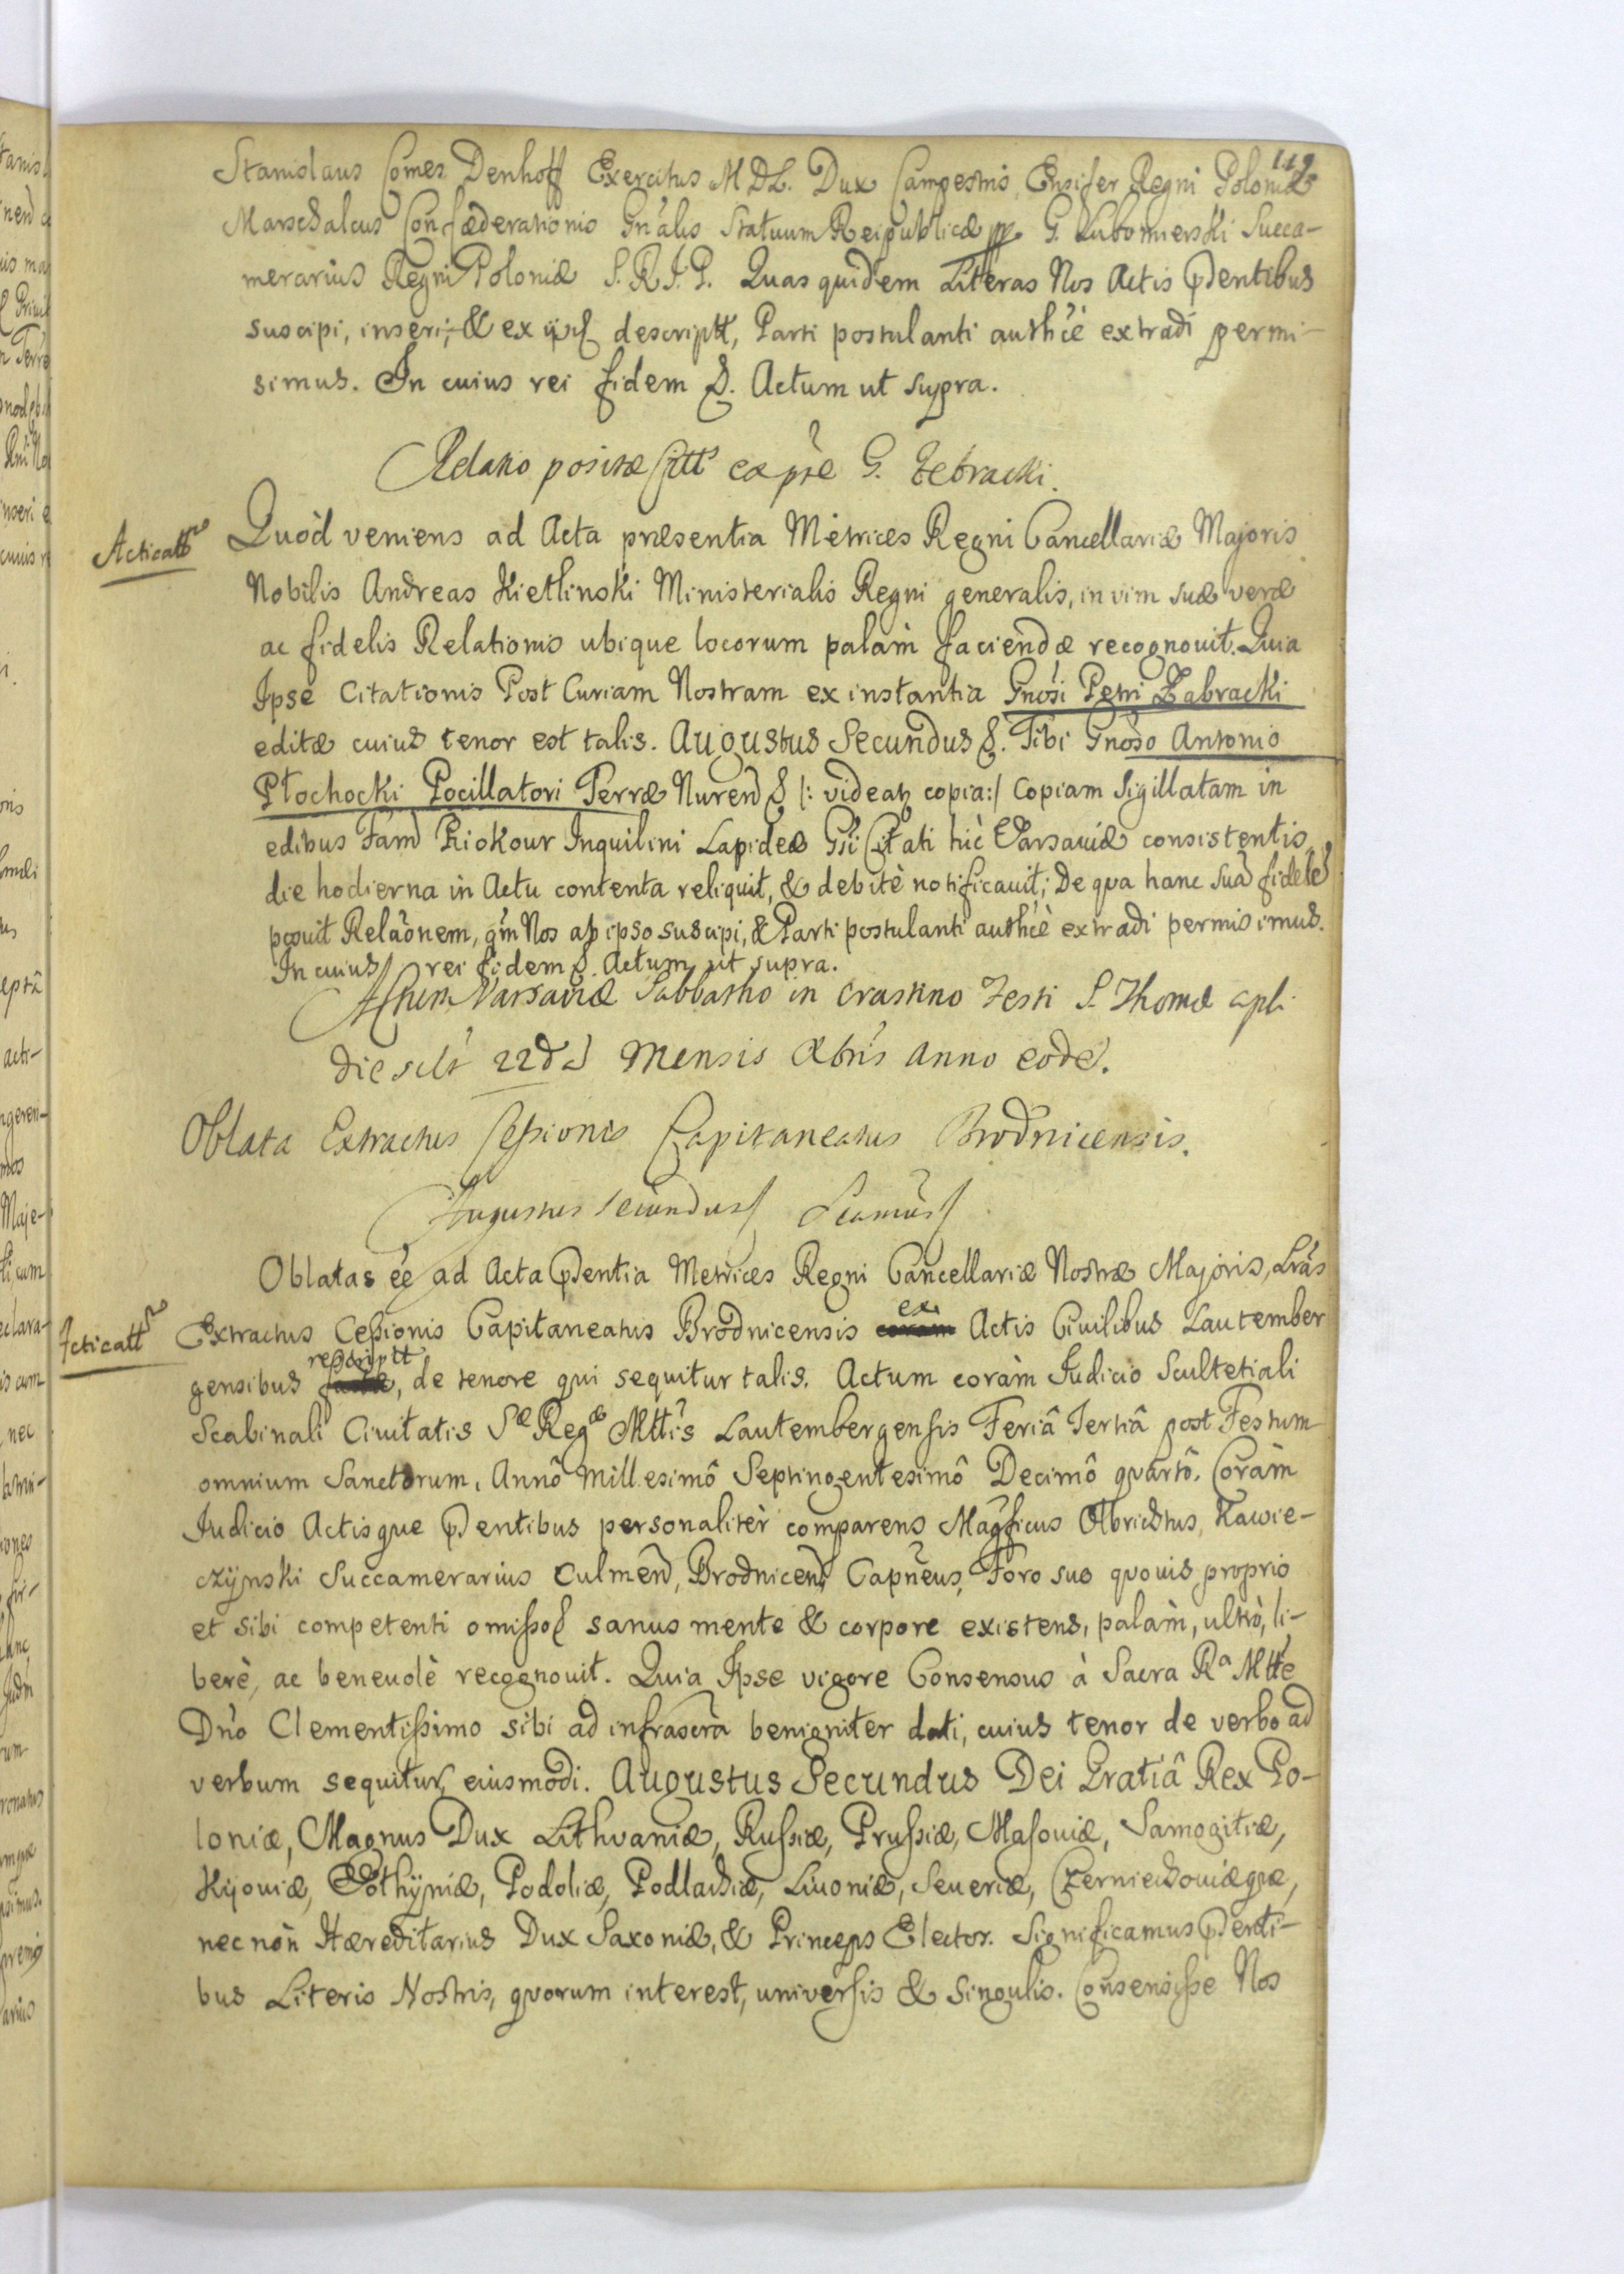 119
Stanislaus Comes Denhoff Exercitus M D L. Dux Campestris, Ensifer Regni Poloniæ
Marschalcus Confæderationis Gnâlis Statuum Reipublicæ mp G. Lubomierski Succa-
merarius Regni Poloniæ S. R. I. P. Quas quidem Literas Nos Actis pñtibus
suscipi, inseri, & ex descriptt, Parti postulanti authcè extradi permi-
simus. In cuius rei fidem &. Actum ut supra.
Relatio positæ Citt ex pte G. Zebracki.
Acticatt
Quòd veniens ad Acta præsentia Metrices Regni Cancellariæ Majoris
Nobilis Andreas Kietlinski Ministerialis Regni generalis, in vim suæ veræ
ac fidelis Relationis ubique locorum palàm faciendæ recognouit. Quia
Ipse Citationis Post Curiam Nostram ex instantia Gnosi Petri Zabracki
editæ cuius tenor est talis. Augustus Secundus &. Tibi Gnoso Antonio
Płochocki Pocillatori Terræ Nuren &. /: videatz copia:/ Copiam Sigillatam in
edibus Fam Riokour Inquilini Lapideæ Gsi Citati hìc Varsaviæ consistentis,
die hodierna in Actu contenta reliquit, & debitè notificauit; De qua hanc suã fidelẽ
posuit Relãonem, qm Nos ab ipso suscipi, & Parti postulanti authcè extradi permisimus.
In cuius rei fidem &. Actum ut supra.
Actum Varsaviæ Sabbatho in crastino Festi S. Thomæ apli
die sclt 22da Mensis Xbris anno eodẽ.
Oblata Extractus Cessionis Capitaneatus Brodnicensis.
Augustus Secundus
Oblatas ee ad Acta pñtia Metrices Regni Cancellariæ Nostræ Majoris, Lrãs
Acticatt
Extractus Cessionis Capitaneatus Brodnicensis ex Actis Ciuilibus Lautember
gensibus rescriptt, de tenore qui sequitur talis. Actum coràm Judicio Scultetiali
Scabinali Ciuitatis Sæ Regæ Mttis Lautembergensis Feriâ Tertiâ post Festum
omnium Sanctorum, Annô Millesimô Septingentesimô Decimô quartô. Coràm
Judicio Actisque pñtibus personalitèr comparens Magficus Olbrichtus, Kawie-
czÿnski Succamerarius Culmen, Brodnicens Capneus, Foro suo quouis proprio
et sibi competenti omisso sanus mente & corpore existens, palàm, ultrò, li-
berè, ac beneuolè recognouit. Quia Ipse vigore Consensus à Sacra Ra Mtte
Dño Clementissimo sibi ad infrascra benigniter dati, cuius tenor de verbo ad
verbum sequitur, eiusmodi. Augustus Secundus Dei Gratiâ Rex Po-
loniæ, Magnus Dux Lithuaniæ, Russiæ, Prussiæ, Masouiæ, Samogitiæ,
Kijouiæ, Volhÿniæ, Podoliæ, Podlachiæ, Liuoniæ, Seueriæ, Czerniechouiæqæ,
nec nòn Hæreditarius Dux Saxoniæ, & Princeps Elector. Significamus pñti-
bus Literis Nostris, quorum interest, universis & singulis. Consensisse Nos